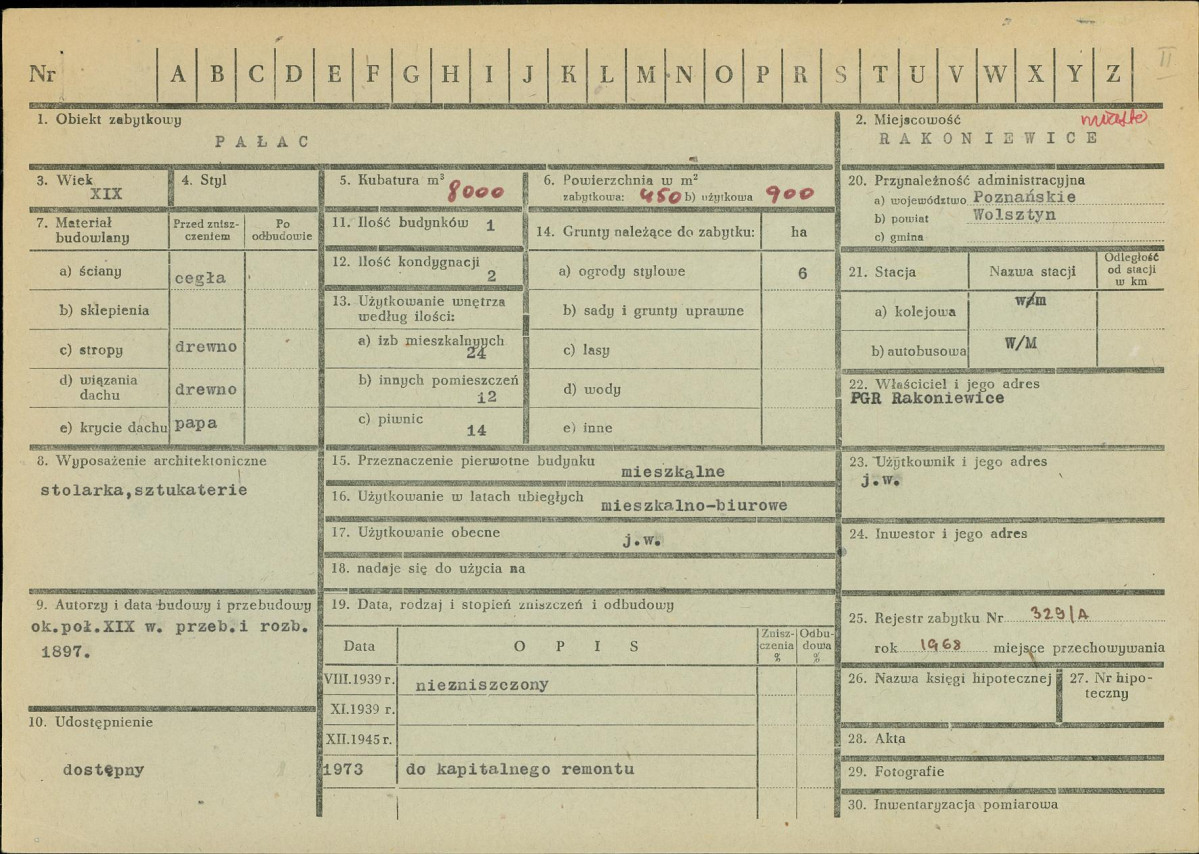 Nr A B C D E F G H I J K L M N O P R S T U V W X Y Z II
1. Obiekt zabytkowy
PAŁAC
2. Miejscowość miasto
RAKONIEWICE
3. Wiek
XIX
4. Styl
5. Kubatura m³ 8000
6. Powierzchnia w m²
zabytkowa: 450 b) użytkowa 900
20. Przynależność administracyjna
a) województwo Poznańskie
b) powiat Wolsztyn
c) gmina
7. Materiał
budowlany
Przed znisz-
czeniem
Po
odbudowie
a) ściany cegła
b) sklepienia
c) stropy drewno
d) wiązania
dachu drewno
e) krycie dachu papa
11. Ilość budynków 1
12. Ilość kondygnacji
2
13. Użytkowanie wnętrza
według ilości:
a) izb mieszkalnych
24
b) innych pomieszczeń
12
c) piwnic
14
14. Grunty należące do zabytku: ha
a) ogrody stylowe 6
b) sady i grunty uprawne
c) lasy
d) wody
e) inne
21. Stacja Nazwa stacji
Odległość
od stacji
w km
a) kolejowa w/m
b) autobusowa W/M
22. Właściciel i jego adres
PGR Rakoniewice
8. Wyposażenie architektoniczne
stolarka,sztukaterie
15. Przeznaczenie pierwotne budynku
mieszkalne
16. Użytkowanie w latach ubiegłych
mieszkalno-biurowe
17. Użytkowanie obecne
j.w.
18. nadaje się do użycia na
23. Użytkownik i jego adres
j.w.
24. Inwestor i jego adres
9. Autorzy i data budowy i przebudowy
ok.poł.XIX w. przeb.i rozb.
1897.
19. Data, rodzaj i stopień zniszczeń i odbudowy
Data OPIS
Znisz-
czenia
%
Odbu-
dowa
%
VIII.1939 r. niezniszczony
XI.1939 r.
XII.1945 r.
1973 do kapitalnego remontu
25. Rejestr zabytku Nr 329/A
rok 1968 miejsce przechowywania
26. Nazwa księgi hipotecznej
27. Nr hipo-
teczny
10. Udostępnienie
dostępny
28. Akta
29. Fotografie
30. Inwentaryzacja pomiarowa